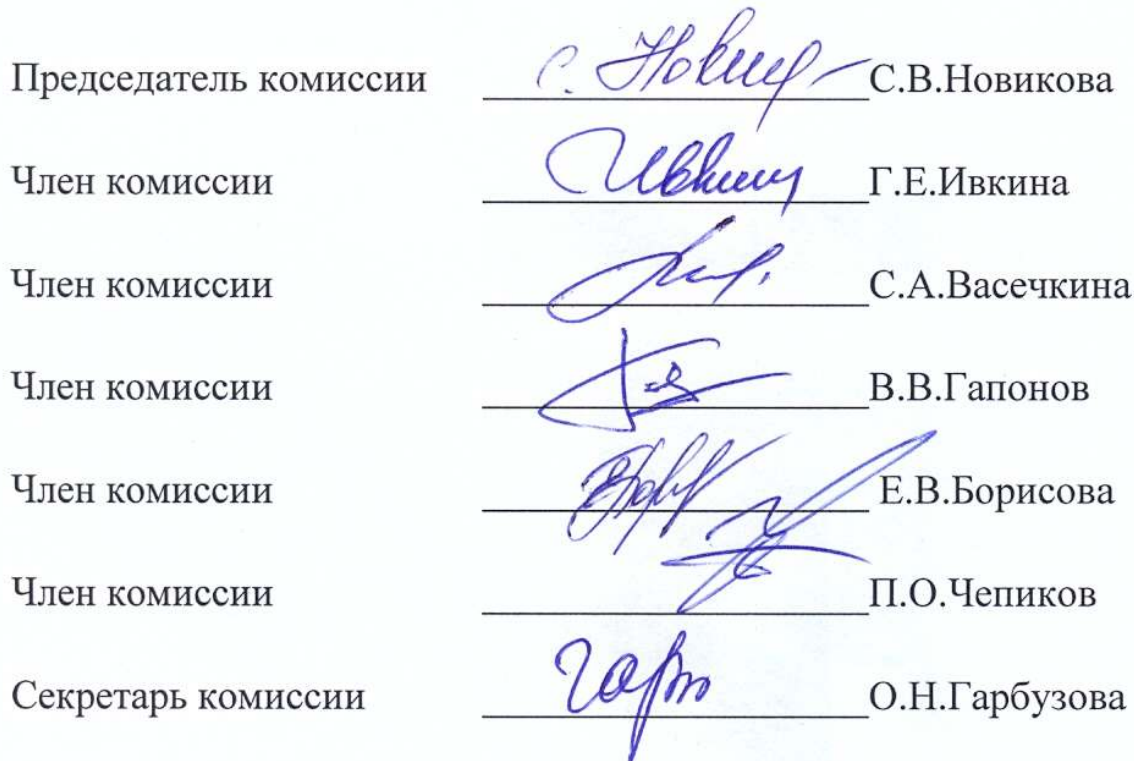 Председатель комиссии С.В.Новикова
Член комиссии Г.Е.Ивкина
Член комиссии С.А.Васечкина
Член комиссии В.В.Гапонов
Член комиссии Е.В.Борисова
Член комиссии П.О.Чепиков
Секретарь комиссии О.Н.Гарбузова